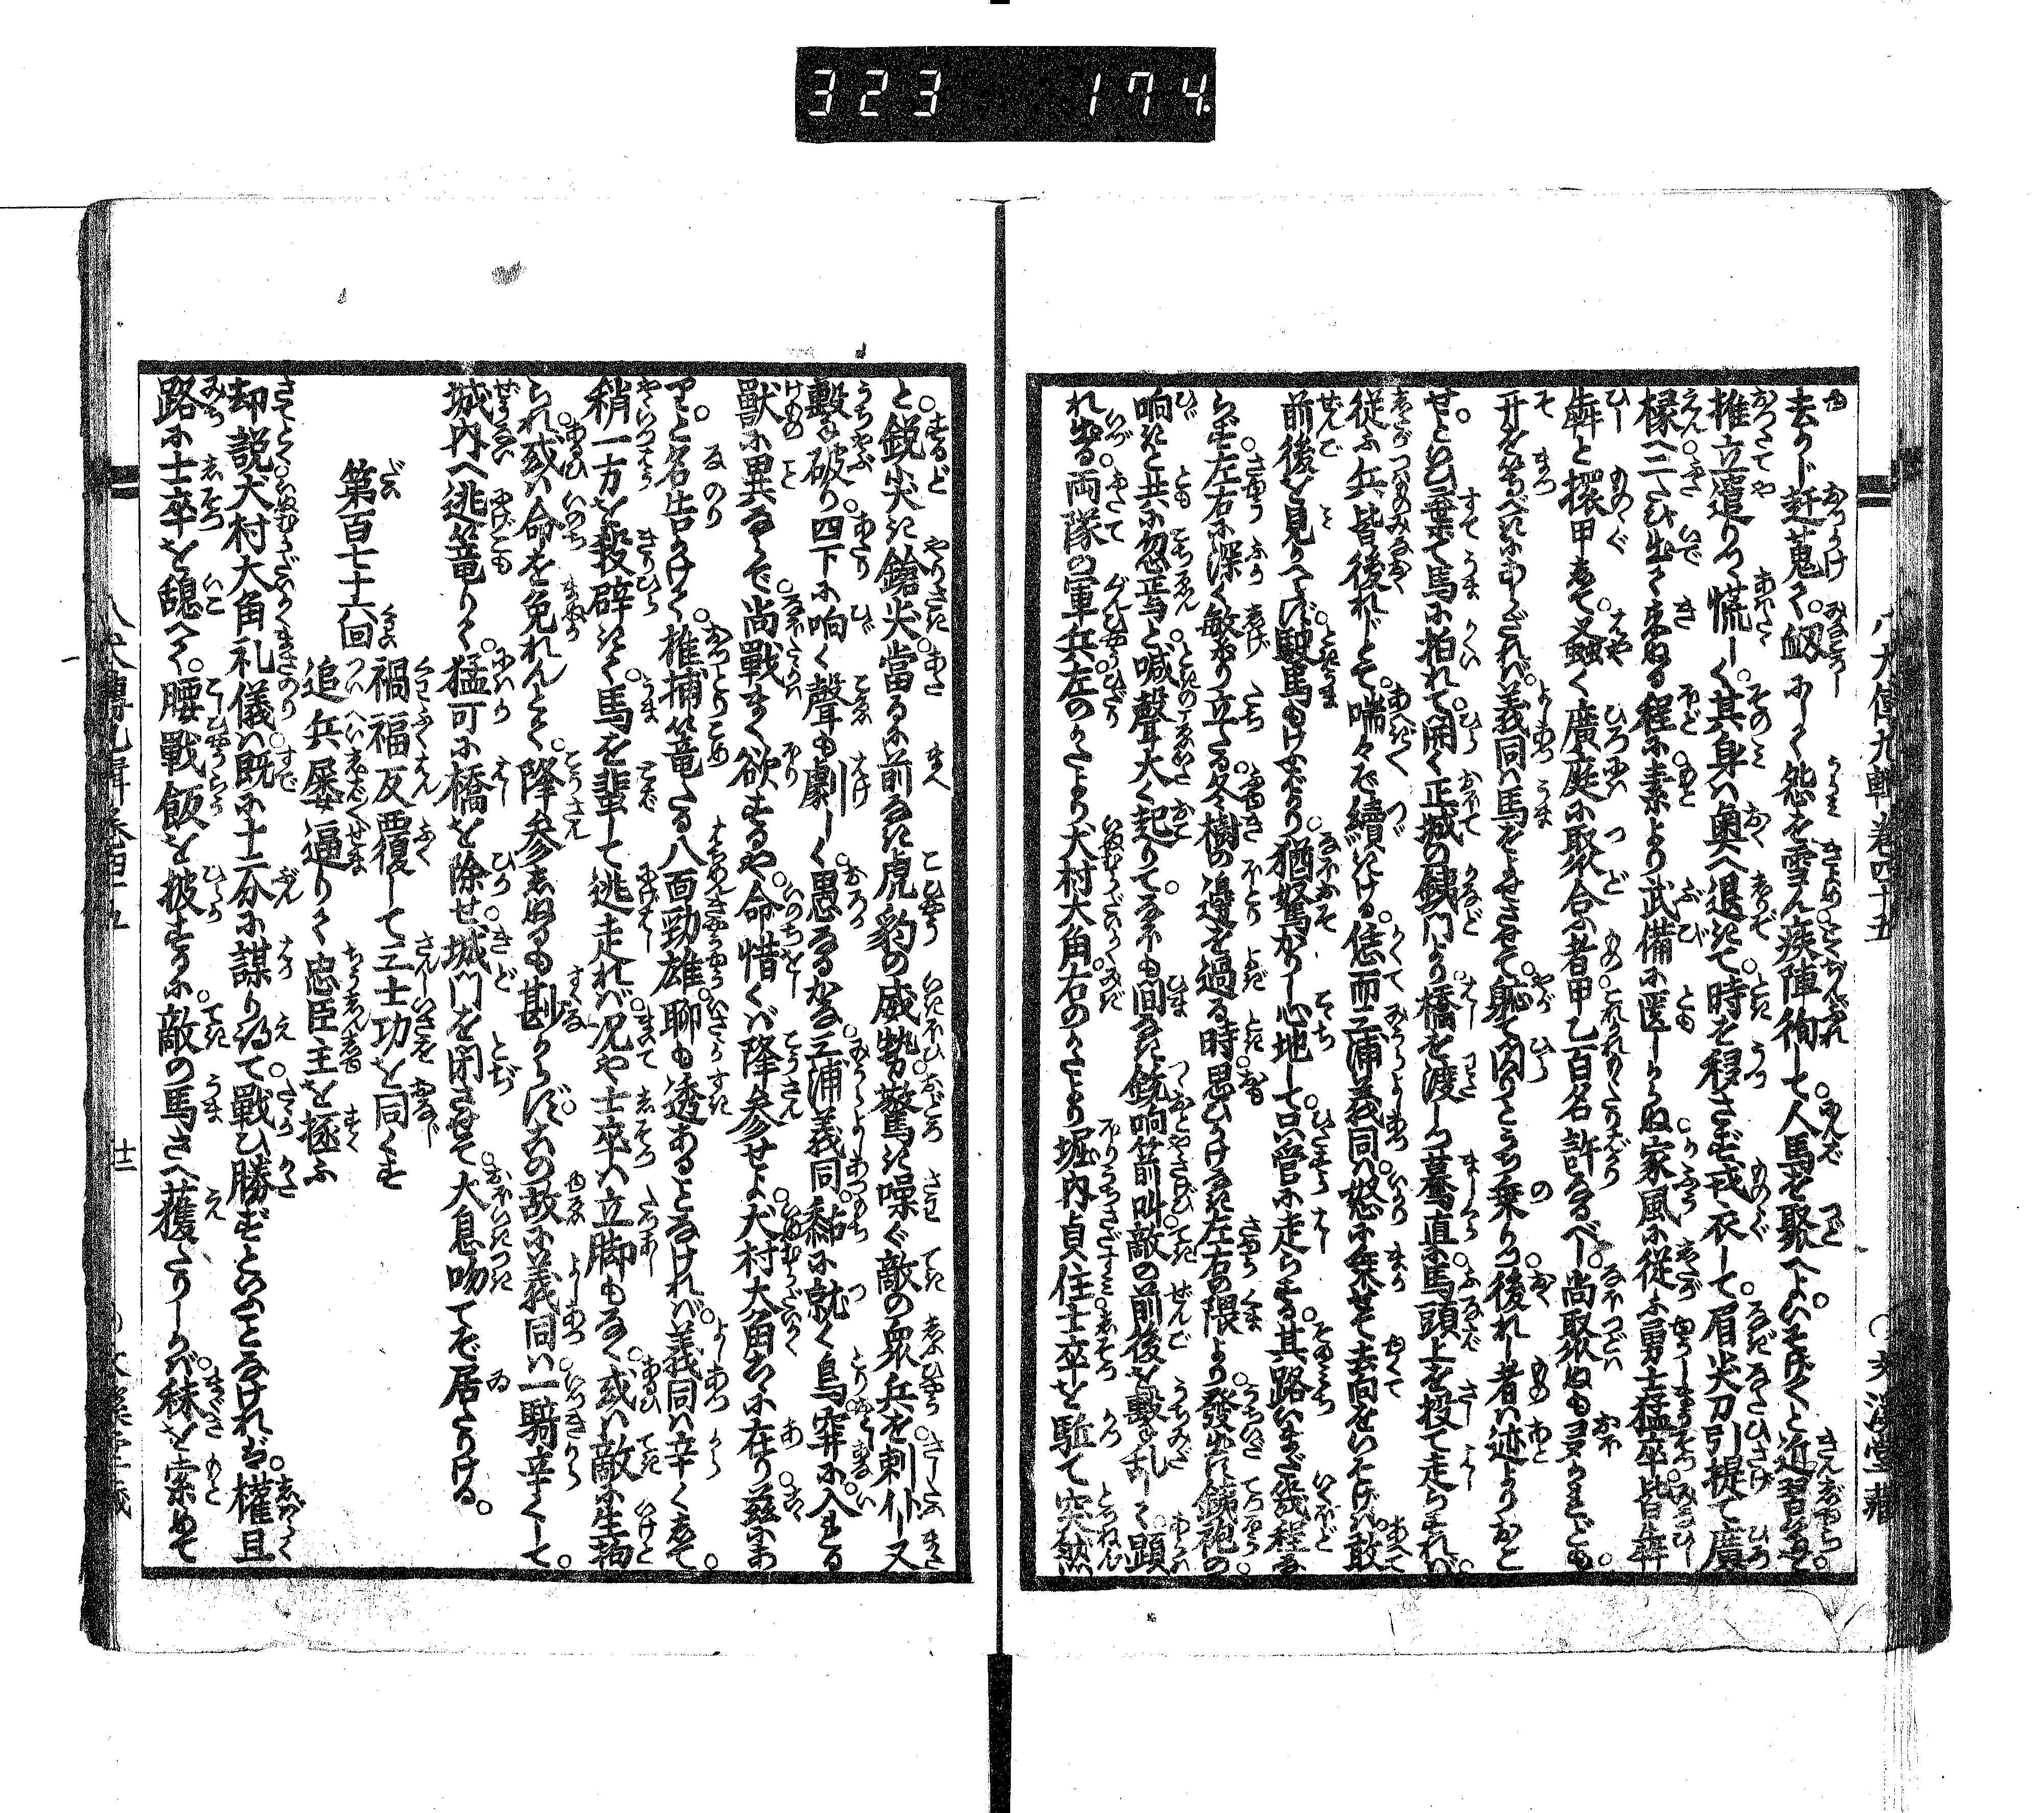 323 174
八犬傳九輯巻四十五
○文溪堂藏
去らじ。赶蒐て。𠝏にして怨を雪ん。疾陣徇して人馬を聚へよ。いそげ〳〵と近習等を。
推立遣りつ慌しく。其身は奥へ退きて。時を移さず戎衣して。眉尖刀引提て廣
椽へ三たび出て來ぬる程に。素より武備に匱しからぬ。家風に從ふ勇士猛卒皆犇
犇と擐甲して。又蝨く廣庭に聚合ふ者甲乙百名許なるべし。尚聚ぬも多かれども。
开を等べきにあらざれば。義同は馬をよせさせて。躬て閃りとうち乗りつ。後れし者は迹よりおこ
せといひ棄て。馬に拍れて。開く正城の鐵門より。橋を渡しつ驀直に馬頭上を投て走らすれば。
從ふ兵皆後れじとて。喘々ぞ續きける。恁而三浦義同は。怒に乗せて去向をいそげば敢
前後を見かへらず。駛馬もけふより猶駑かりし心地して。只管に走らする。其路いまだ幾程な
らず左右に深く敏かり立たる。冬樹の邊を過る時。思ひがけなき左右の隈より。發出す鐵砲の
响きと共に忽焉と。喊聲大く起りて。なほも間なき銃响箭叫。敵の前後を擊乱しく。顕
れ出る。両隊の軍兵。左のかたより犬村大角。右のかたより堀内貞住。士卒を駈て突然
と。鋭尖き鎗尖。當るに前なき虎豹の威勢。驚き噪ぐ敵の衆兵を刺仆し又
擊破り。四下に响く聲も劇しく。愚なるかな三浦義同。黐に就く鳥。穽に入りたる
獸に異ならで。尚戰まく欲するや。命惜くば降參せよ。犬村大角茲に在り。茲にあ
りと。名告かけて。推捕籠たる八面勁雄。聊も透あることなければ。義同は辛くして。
稍一方を殺辟きて。馬を輩して逃走れば。况や士卒は立脚もなく。或は敵に生拘
られ。或は命を免れんとて。降參しぬるも尠からず。この故に義同は一騎辛くして。
城内へ逃籠りて。猛可に橋を除せ。城門を閉させて。大息吻てぞ居たりける。
第百七十六回
禍福反覆して三士功を同くす
追兵屡逼りて忠臣主を拯ふ
却説犬村大角礼儀は。既に十二分に謀り得て。戰ひ勝ずといふことなければ。權且
路に士卒を憩へて。腰戰飯を披する に。敵の馬さへ獲たりしかば。秣を索めて